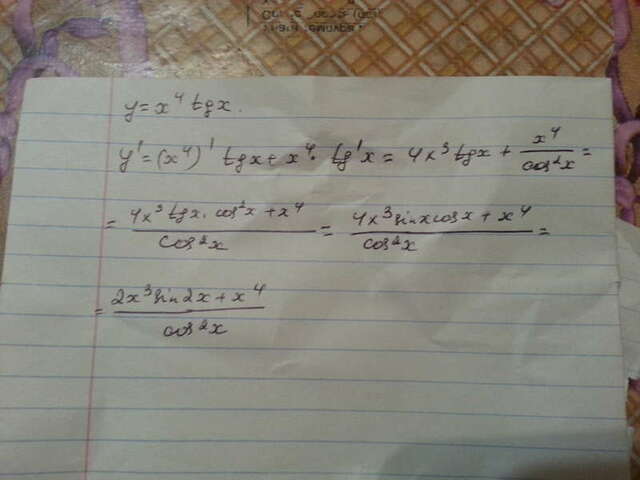 y = x⁴ tgx.
y' = (x⁴)' tgx + x⁴ · tg'x = 4x³ tgx + x⁴/cos²x =
= (4x³ tgx · cos²x + x⁴)/cos²x = (4x³ sinx cosx + x⁴)/cos²x =
= (2x³ sin2x + x⁴)/cos²x